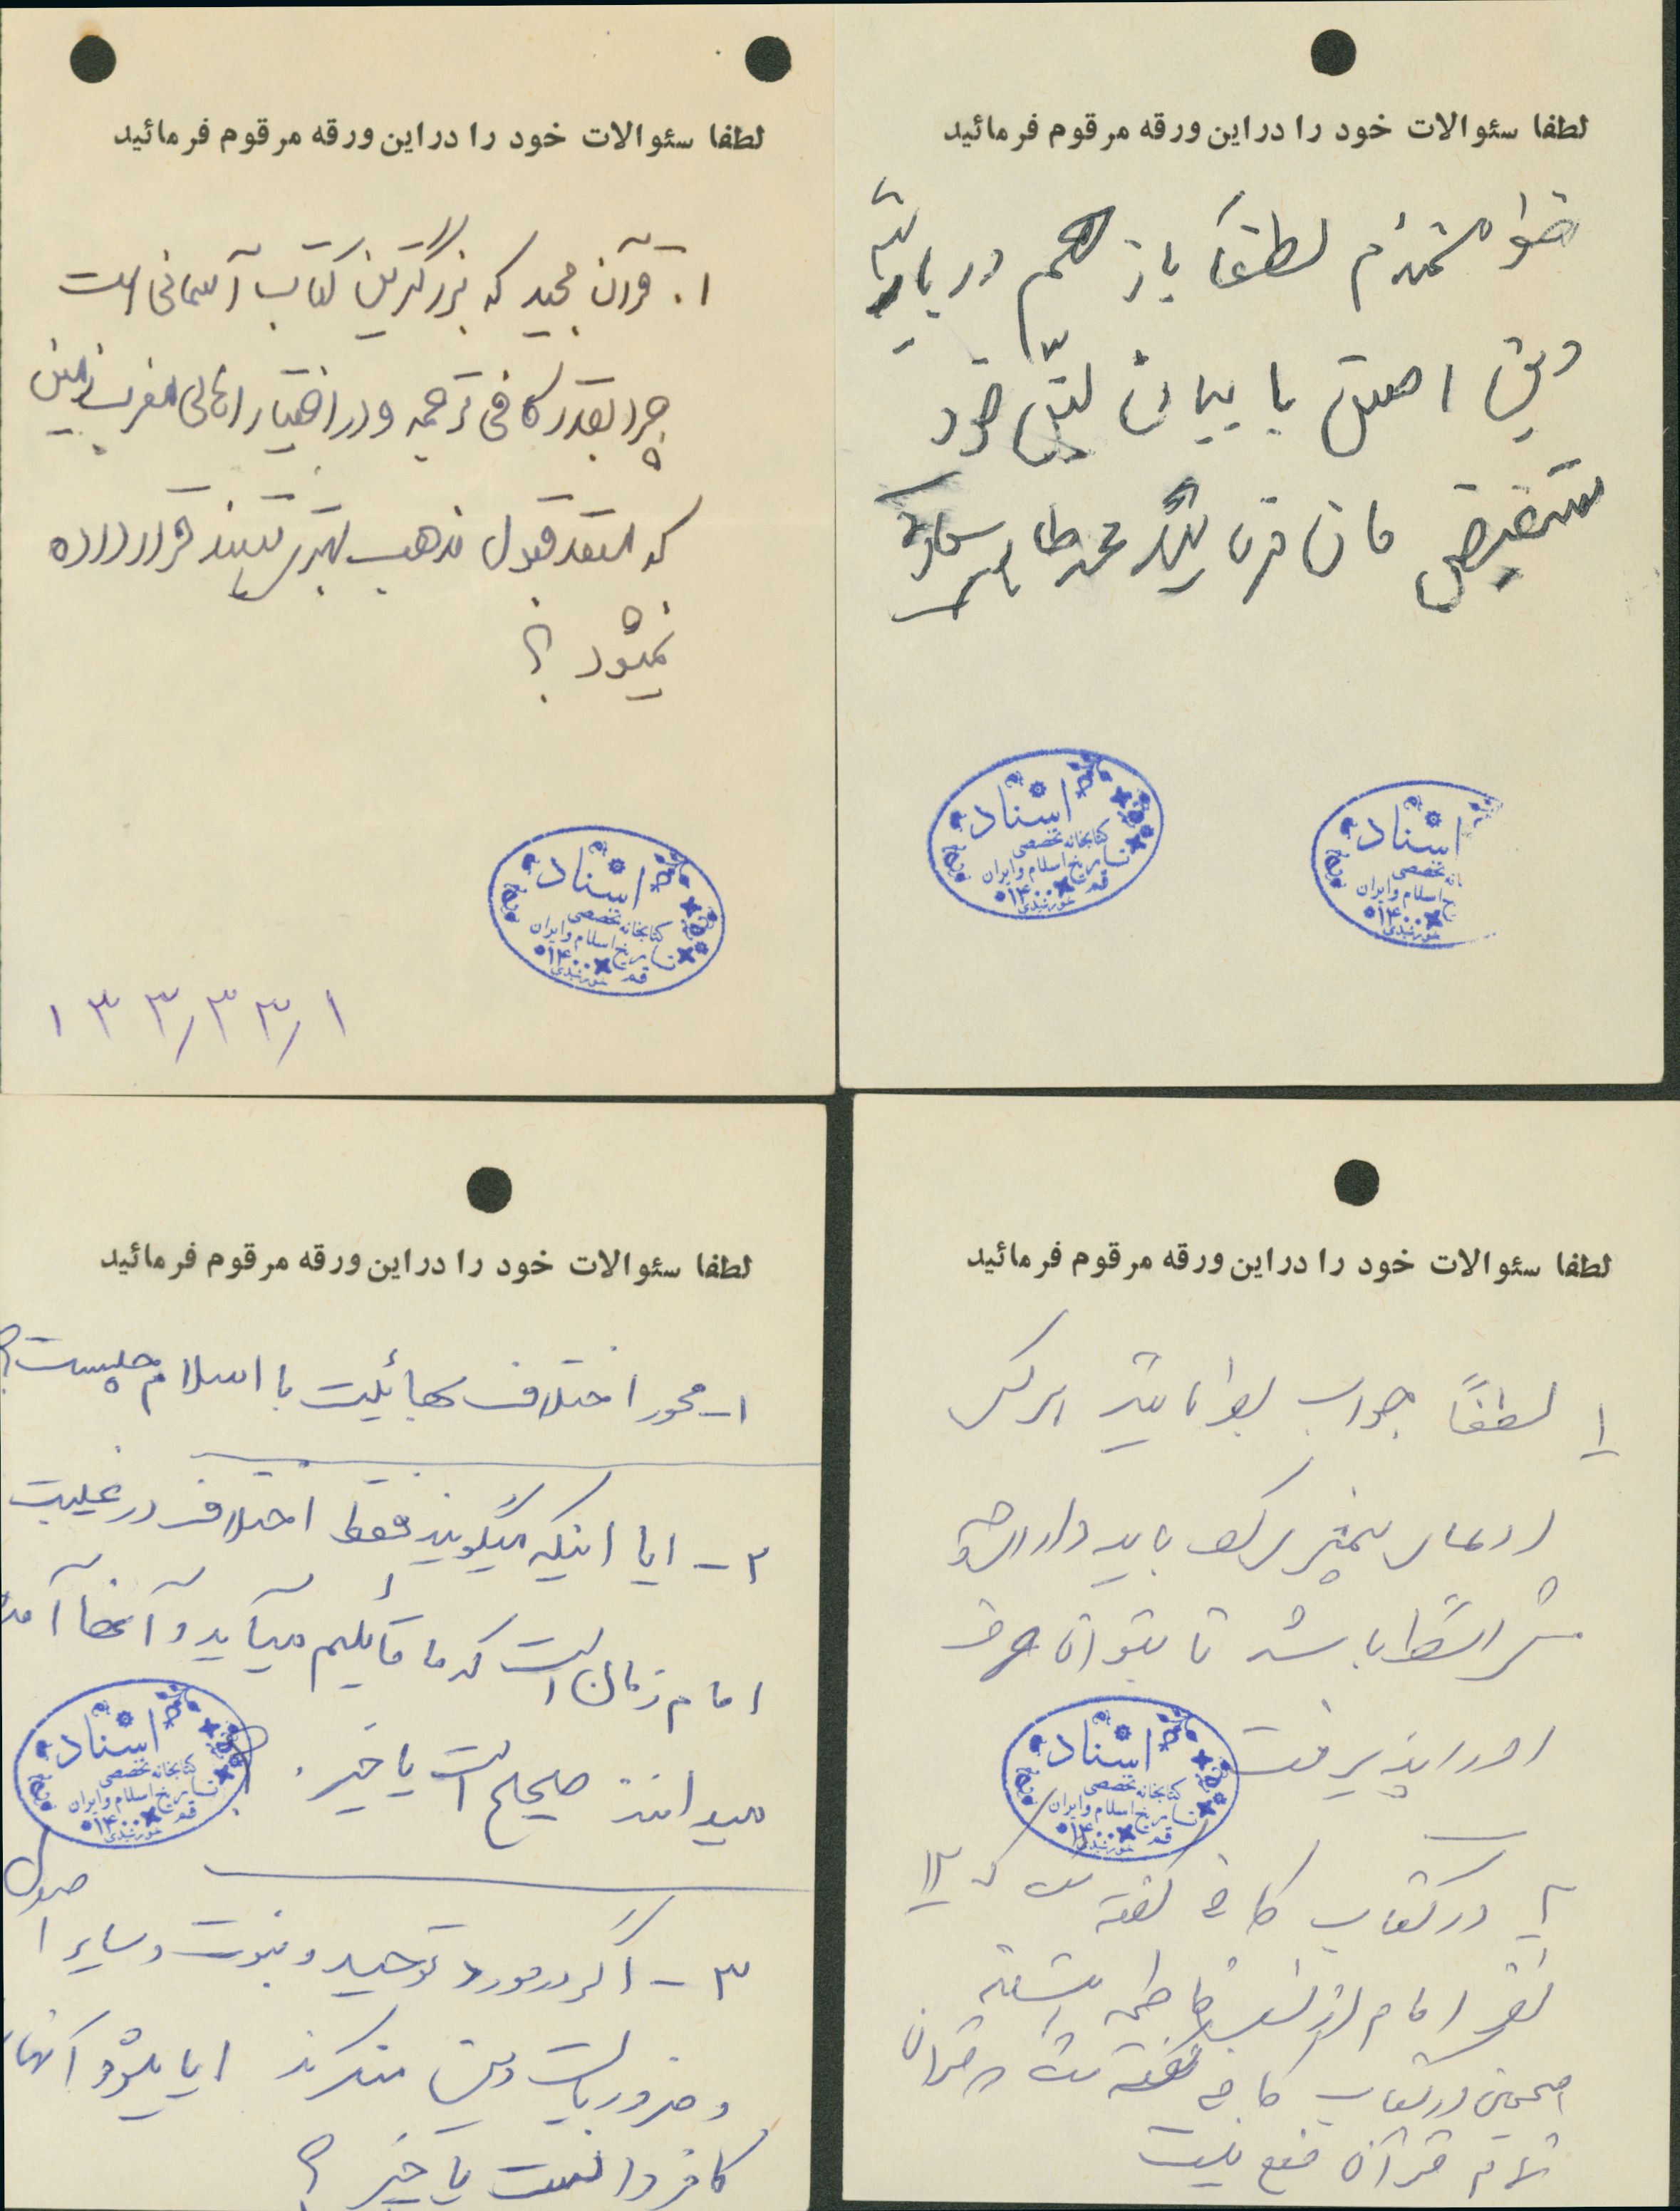 لطفا سئوالات خود را در این ورقه مرقوم فرمائید
خواهشمندم لطفاً باز هم درباره
دین اصیل با بیان خود
مستفیض
اسناد
کتابخانه تخصصی
تاریخ اسلام و ایران
قم ۱۴۰۰
اسناد
تخصصی
اسلام و ایران
۱۴۰۰
لطفا سئوالات خود را در این ورقه مرقوم فرمائید
۱. قرآن مجید که بزرگترین کتاب آسمانی است
چرا بقدر کافی ترجمه و در اختیار اهالی مغرب زمین
که مستعد قبول مذهب بهتر هستند قرار داده
نمیشود ؟
اسناد
کتابخانه تخصصی
تاریخ اسلام و ایران
قم ۱۴۰۰
۱۳۳٫۳۳٫۱
لطفا سئوالات خود را در این ورقه مرقوم فرمائید
۱ لطفاً جواب بفرمائید هر کس
ادعای پیغمبری کند باید دارای چه
شرائطی باشد تا بتوان حرف
او را پذیرفت
اسناد
کتابخانه تخصصی
تاریخ اسلام و ایران
قم ۱۴۰۰
۲ در کتاب کافی گفته شده که ۱۲
نفر امام از نسل فاطمه
همچنین در کتاب کافی گفته شده قرآن
قرآن نیست
لطفا سئوالات خود را در این ورقه مرقوم فرمائید
۱- محور اختلاف بهائیت با اسلام چیست؟
۲- ایا اینکه میگویند فقط اختلاف در غیبت
امام زمان است که ما قائلیم میآید و آنها آمده
میدانند صحیح است یا خیر . ؟
اسناد
کتابخانه تخصصی
تاریخ اسلام و ایران
قم ۱۴۰۰
۳- اگر در مورد توحید و نبوت و سایر اصول
و ضروریات دین منکرند ایا میشود آنها را
کافر دانست یا خیر ؟